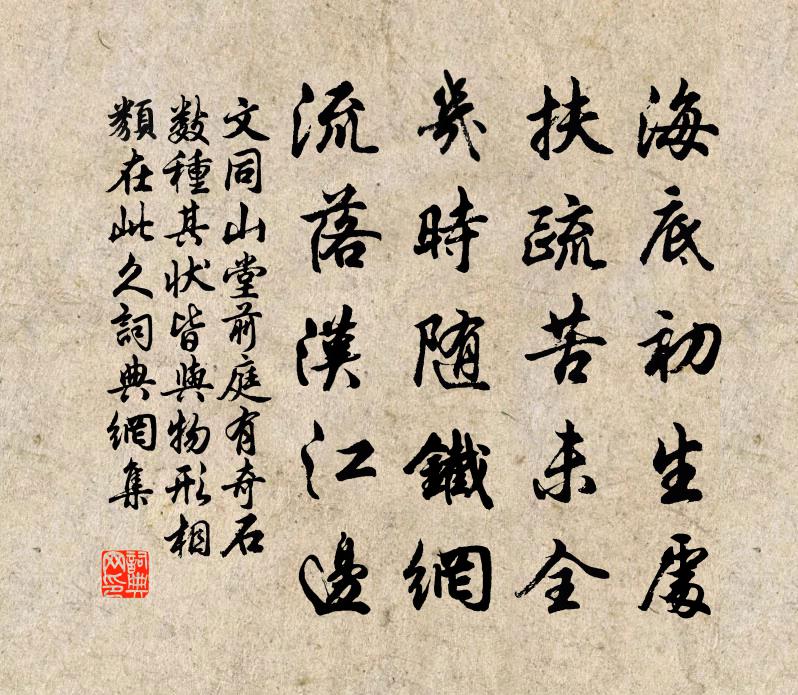 海底初生處
扶疏苦未全
幾時随鐵網
流落漢江邊
文同山堂前庭有奇石
数種其状皆與物形相
類在此久詞典網集
詞典
网印